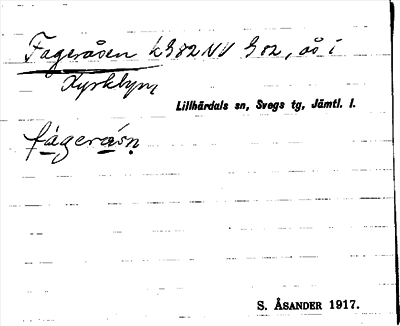 Fageråsen k 982 NV 902, ås i
Kyrkbyn
Lillhärdals sn, Svegs tg, Jämtl. l.
fágeråsn
S. ÅSANDER 1917.